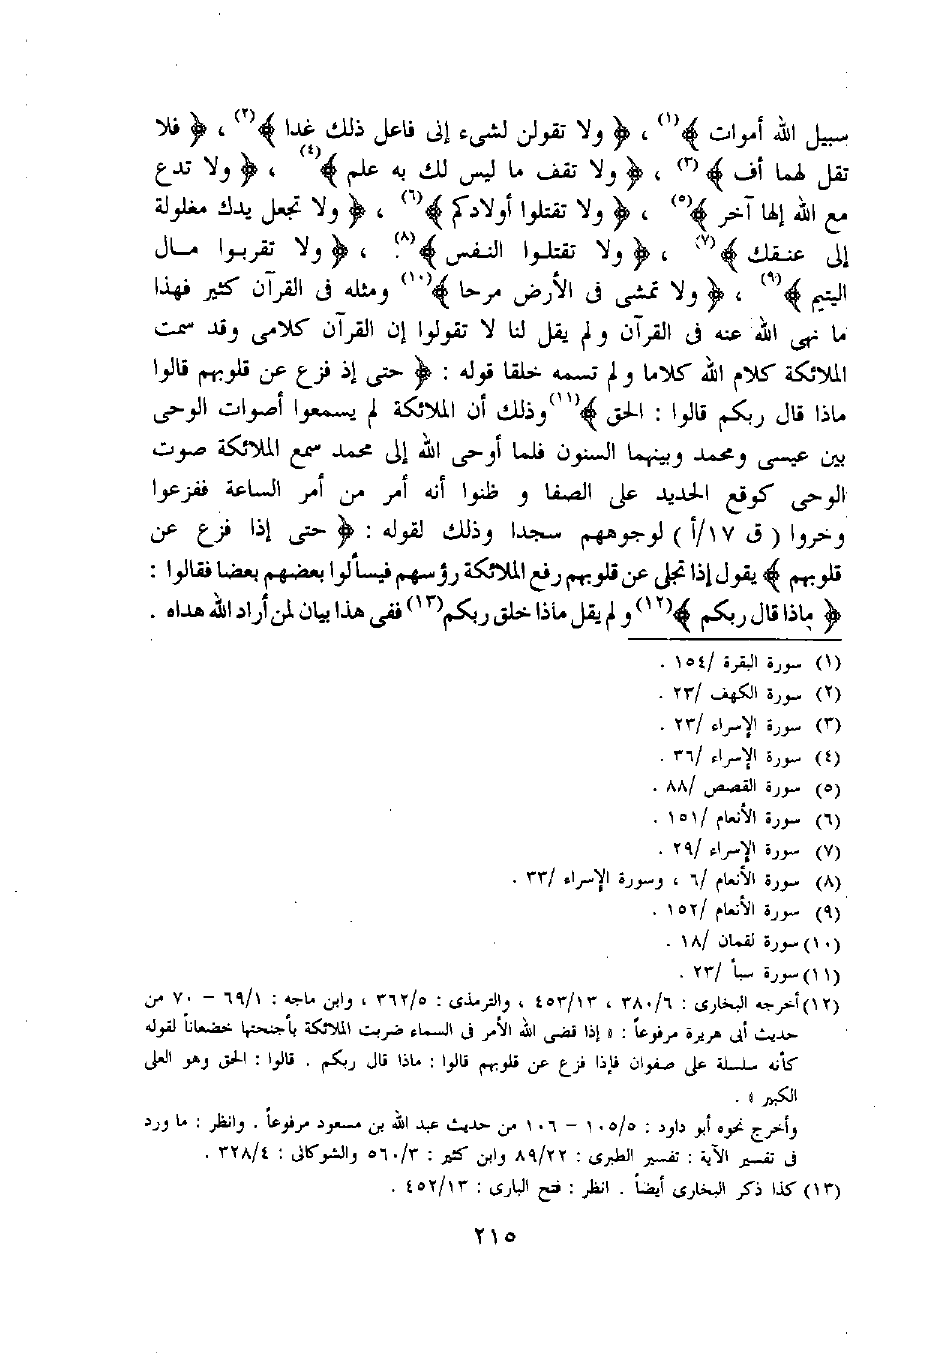 سبيل الله أموات ﴾(١) ، ﴿ ولا تقولن لشيء إنى فاعل ذلك غدا ﴾(٢) ، ﴿ فلا
تقل لهما أف ﴾(٣) ، ﴿ ولا تقف ما ليس لك به علم ﴾(٤) ، ﴿ ولا تدع
مع الله إلها آخر ﴾(٥) ، ﴿ ولا تقتلوا أولادكم ﴾(٦) ، ﴿ ولا تجعل يدك مغلولة
إلى عنقك ﴾(٧) ، ﴿ ولا تقتلوا النفس ﴾(٨) ، ﴿ ولا تقربوا مال
اليتيم ﴾(٩) ، ﴿ ولا تمشى فى الأرض مرحا ﴾(١٠) ومثله فى القرآن كثير فهذا
ما نهى الله عنه فى القرآن ولم يقل لنا لا تقولوا إن القرآن كلامى وقد سمت
الملائكة كلام الله كلاما ولم تسمه خلقا قوله : ﴿ حتى إذ فزع عن قلوبهم قالوا
ماذا قال ربكم قالوا : الحق ﴾(١١) وذلك أن الملائكة لم يسمعوا أصوات الوحى
بين عيسى ومحمد وبينهما السنون فلما أوحى الله إلى محمد سمع الملائكة صوت
الوحى كوقع الحديد على الصفا و ظنوا أنه أمر من أمر الساعة ففزعوا
وخروا ( ق ١٧/أ ) لوجوههم سجدا وذلك لقوله : ﴿ حتى إذا فزع عن
قلوبهم ﴾ يقول إذا تجلى عن قلوبهم رفع الملائكة رؤسهم فيسألوا بعضهم بعضا فقالوا :
﴿ ماذا قال ربكم ﴾(١٢) و لم يقل ماذا خلق ربكم(١٣) ففى هذا بيان لمن أراد الله هداه .
(١) سورة البقرة /١٥٤ .
(٢) سورة الكهف /٢٣ .
(٣) سورة الإسراء /٢٣ .
(٤) سورة الإسراء /٣٦ .
(٥) سورة القصص /٨٨ .
(٦) سورة الأنعام /١٥١ .
(٧) سورة الإسراء /٢٩ .
(٨) سورة الأنعام /٦ ، وسورة الإسراء /٣٣ .
(٩) سورة الأنعام /١٥٢ .
(١٠) سورة لقمان /١٨ .
(١١) سورة سبأ /٢٣ .
(١٢) أخرجه البخارى : ٣٨٠/٦ ، ٤٥٣/١٣ ، والترمذى : ٣٦٢/٥ ، وابن ماجه : ٦٩/١ – ٧٠ من
حديث أبى هريرة مرفوعاً : « إذا قضى الله الأمر فى السماء ضربت الملائكة بأجنحتها خضعاناً لقوله
كأنه سلسلة على صفوان فإذا فزع عن قلوبهم قالوا : ماذا قال ربكم . قالوا : الحق وهو العلى
الكبير » .
وأخرج نحوه أبو داود : ١٠٥/٥ – ١٠٦ من حديث عبد الله بن مسعود مرفوعاً . وانظر : ما ورد
فى تفسير الآية : تفسير الطبرى : ٨٩/٢٢ وابن كثير : ٥٦٠/٣ والشوكانى : ٣٢٨/٤ .
(١٣) كذا ذكر البخارى أيضاً . انظر : فتح البارى : ٤٥٢/١٣ .
٢١٥